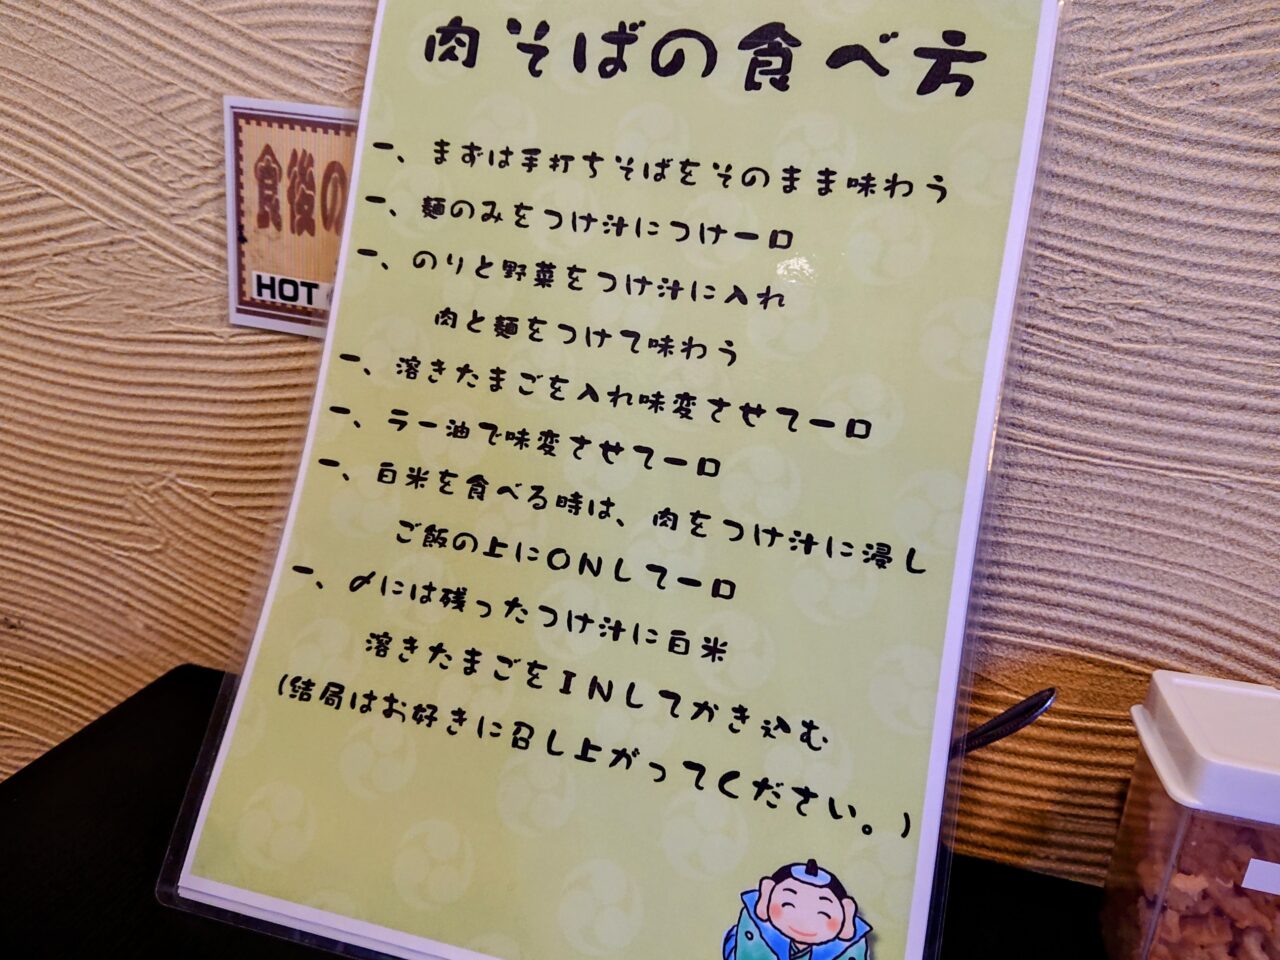 肉そばの食べ方
一、まずは手打ちそばをそのまま味わう
一、麺のみをつけ汁につけ一口
一、のりと野菜をつけ汁に入れ
肉と麺をつけて味わう
一、溶きたまごを入れ味変させて一口
一、ラー油で味変させて一口
一、白米を食べる時は、肉をつけ汁に浸し
ご飯の上にONして一口
一、〆には残ったつけ汁に白米
溶きたまごをINしてかき込む
(結局はお好きに召し上がってください。)
食後の
HOT